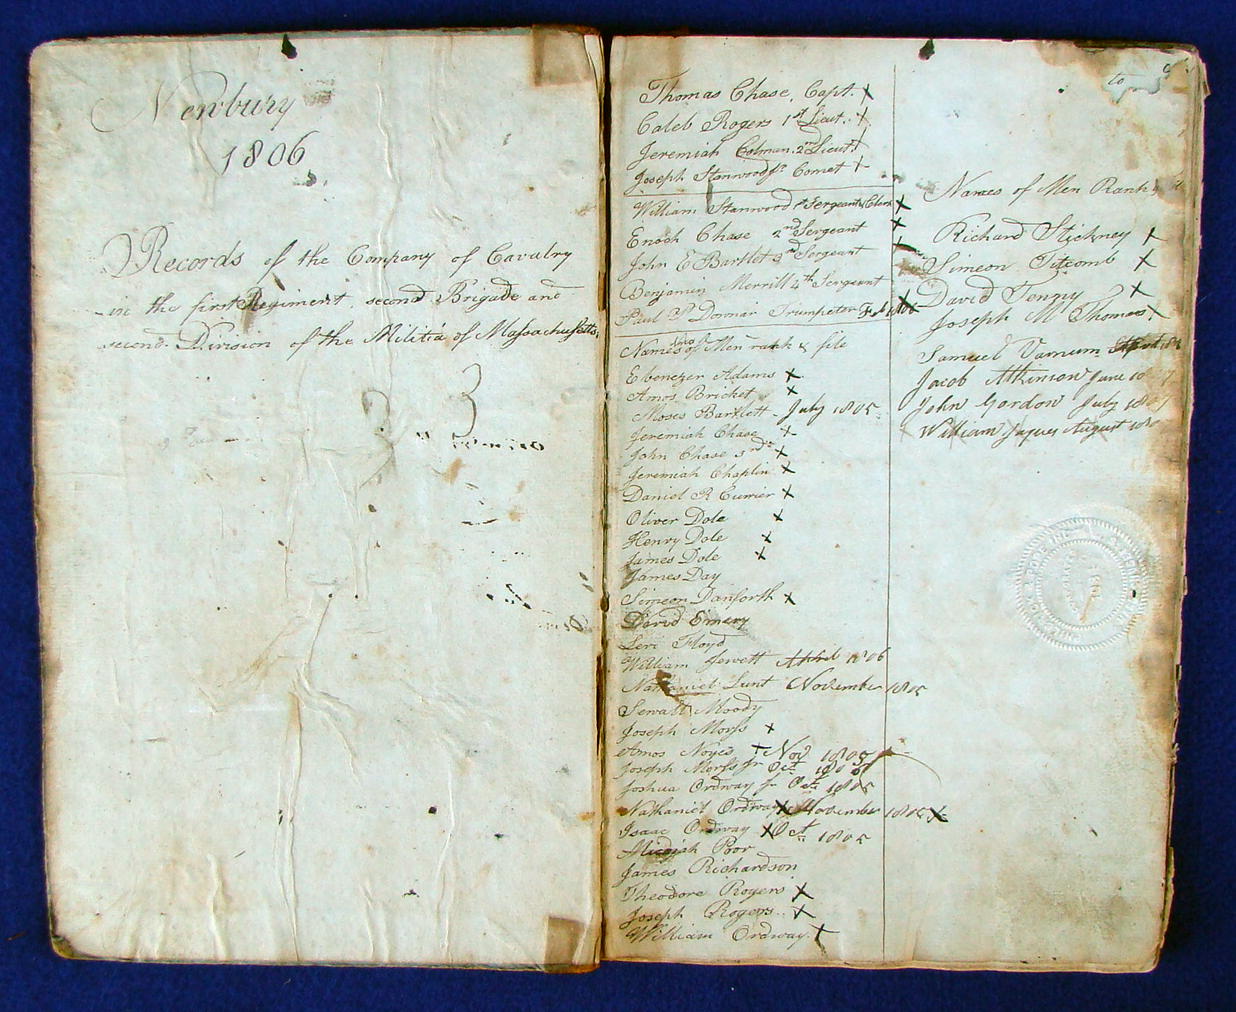 Newbury
1806
Records of the Company of Cavalry
in the first Regiment second Brigade and
second Division of the Militia of Massachusetts
3
Thomas Chase, Capt. X
Caleb Rogers 1st Lieut. X
Jeremiah Colman 2nd Lieut. X
Joseph Stanwood Jr Cornet X
William Stanwood Sergeant & Clerk X
Enoch Chase 2nd Sergeant X
John E Bartlet 3rd Sergeant
Benjamin Merrill 4th Sergeant
Paul P Trumpeter
Names of Men rank & file
Ebenezer Adams X
Amos Bricket X
Moses Bartlett July 1805
Jeremiah Chase X
John Chase 3rd X
Jeremiah Chaplin X
Daniel R Currier X
Oliver Dole X
Henry Dole X
James Dole X
James Day
Simeon Danforth X
David Emery
Levi Floyd
William Jewett April 1806
Nathaniel Lunt November 1805
Sewall Moody
Joseph Morss X
Amos Noyes X Nov 1805
Joseph Morss Jr Oct
Joshua Ordway Jr Oct 1805
Nathaniel Ordway X November 1805 X
Isaac Ordway X Oct 1805
Micajah Poor
James Richardson
Theodore Rogers X
Joseph Rogers X
William Ordway X
to
Names of Men Rank
Richard Stickney X
Simeon Titcomb X
David Tenny X
Joseph M Thomas X
Samuel Varnum
Jacob Atkinson June
John Gordon July
William Jaques August